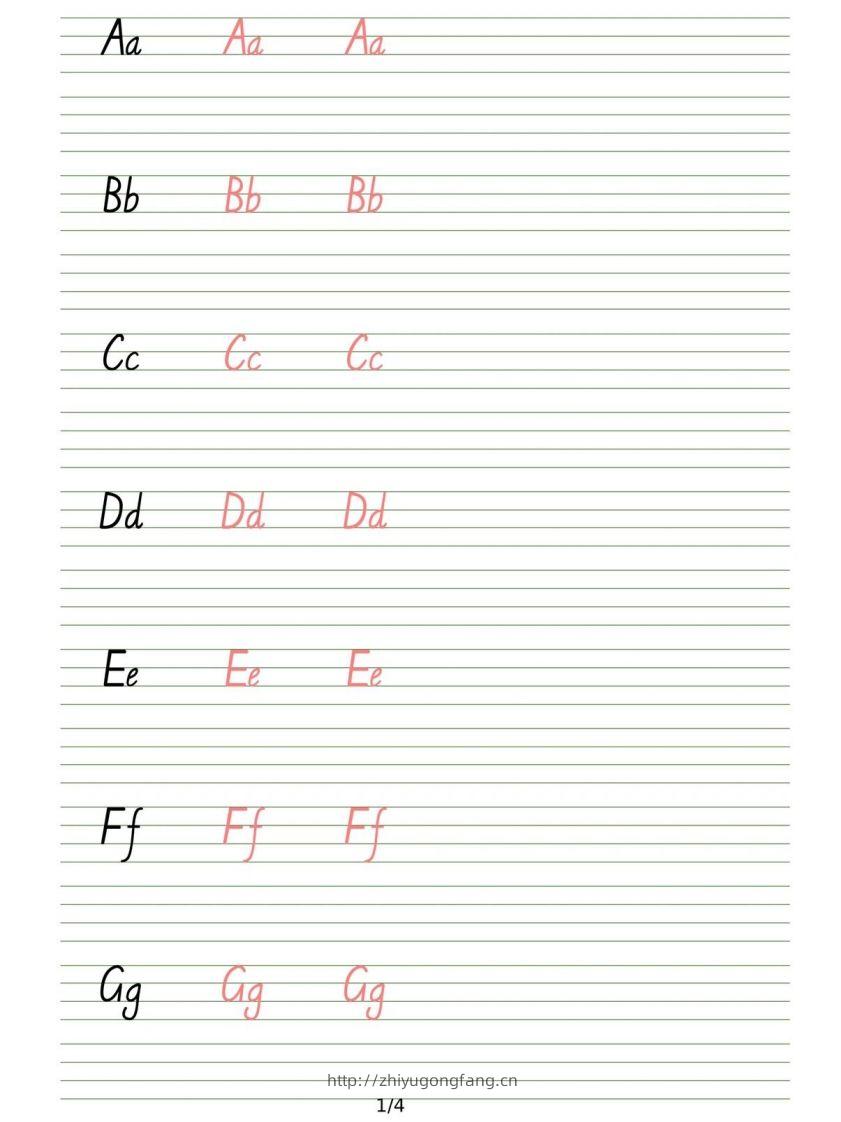 Aa Aa Aa
Bb Bb Bb
Cc Cc Cc
Dd Dd Dd
Ee Ee Ee
Ff Ff Ff
Gg Gg Gg
http://zhiyugongfang.cn
1/4